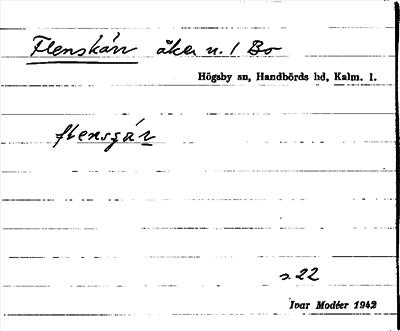 Flenskärr åker n. 1 Bo
Högsby sn, Handbörds hd, Kalm. l.
flensgár
s. 22
Ivar Modéer 1942